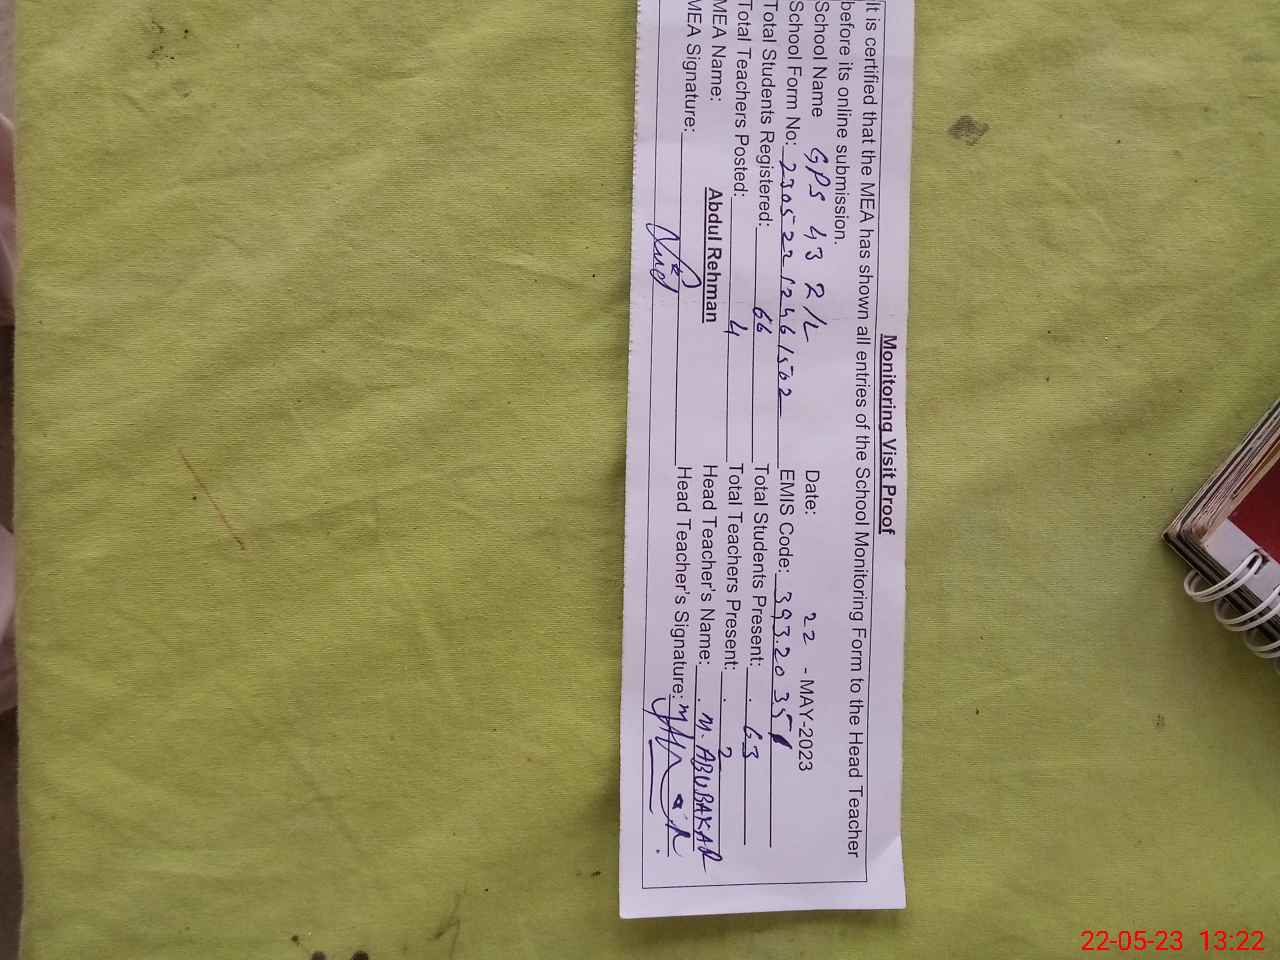 Monitoring Visit Proof
It is certified that the MEA has shown all entries of the School Monitoring Form to the Head Teacher
before its online submission.
School Name GPS 43 2/L Date: 22 - MAY-2023
School Form No: 23052212461502 EMIS Code: 393.20351
Total Students Registered: 66 Total Students Present: 63
Total Teachers Posted: 4 Total Teachers Present: 2
MEA Name: Abdul Rehman Head Teacher's Name: M. ABUBAKAR
MEA Signature: Head Teacher's Signature:
22-05-23 13:22